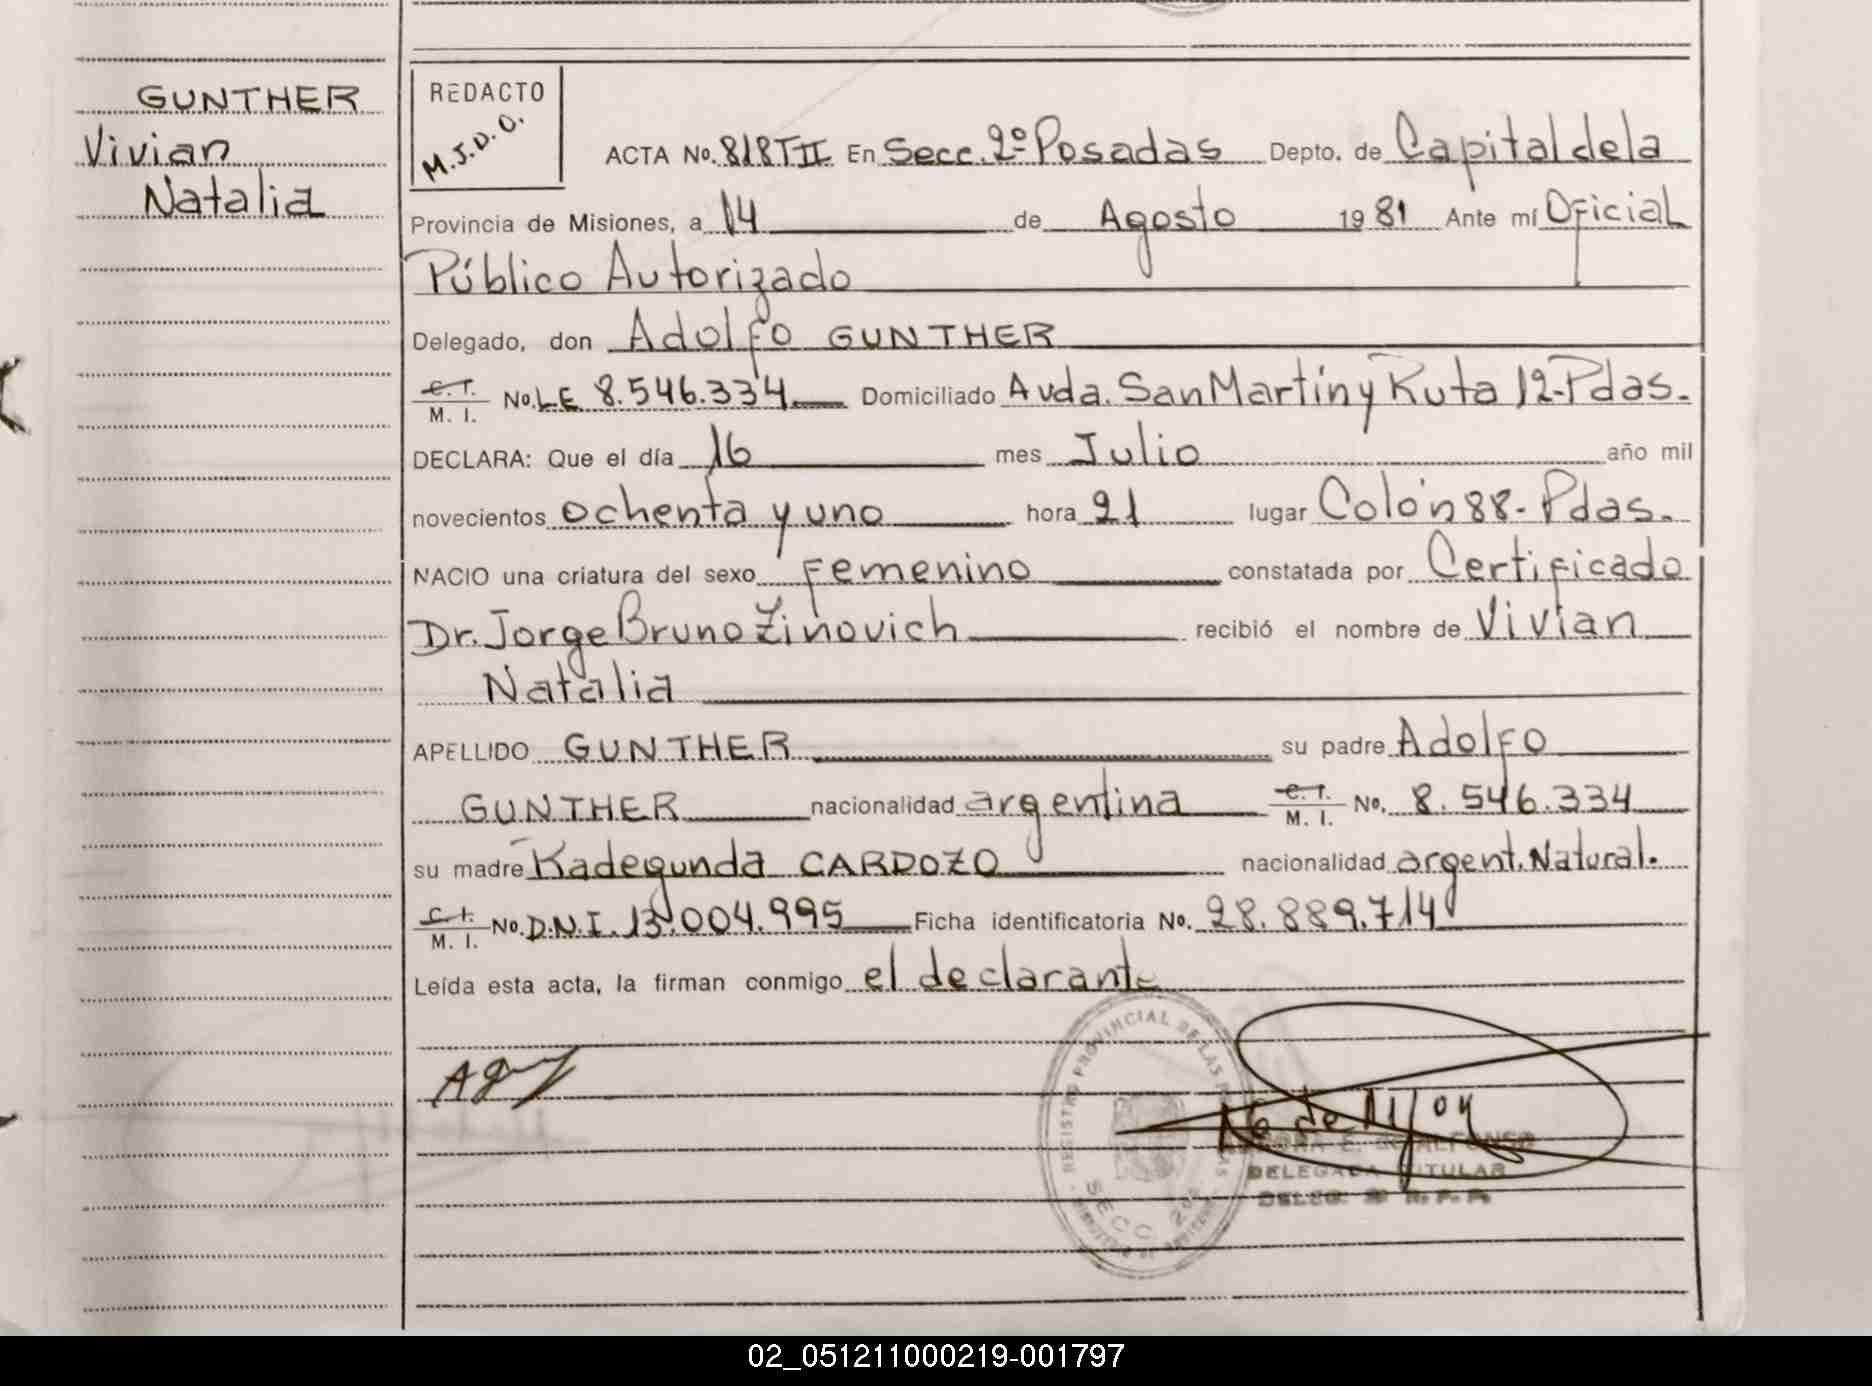 GUNTHER
Vivian
Natalia
REDACTO
M.J.D.O.
ACTA No. 818 T II En Secc. 2º Posadas Depto. de Capital de la
Provincia de Misiones, a 14 de Agosto 1981 Ante mí Oficial
Público Autorizado
Delegado, don Adolfo GUNTHER
C. I. / M. I. No. LE 8.546.334 Domiciliado Avda. San Martín y Ruta 12-Pdas.
DECLARA: Que el día 16 mes Julio año mil
novecientos ochenta y uno hora 21 lugar Colón 88- Pdas.
NACIO una criatura del sexo femenino constatada por Certificado
Dr. Jorge Bruno Zinovich recibió el nombre de Vivian
Natalia
APELLIDO GUNTHER su padre Adolfo
GUNTHER nacionalidad argentina C. I. / M. I. No. 8.546.334
su madre Radegunda CARDOZO nacionalidad argent. Natural.
C. I. / M. I. No. D.N.I. 13.004.995 Ficha identificatoria No. 28.889.714
Leída esta acta, la firman conmigo el declarante
REGISTRO PROVINCIAL DE LAS
SECC. 2
DELEGADA TITULAR
02_051211000219-001797